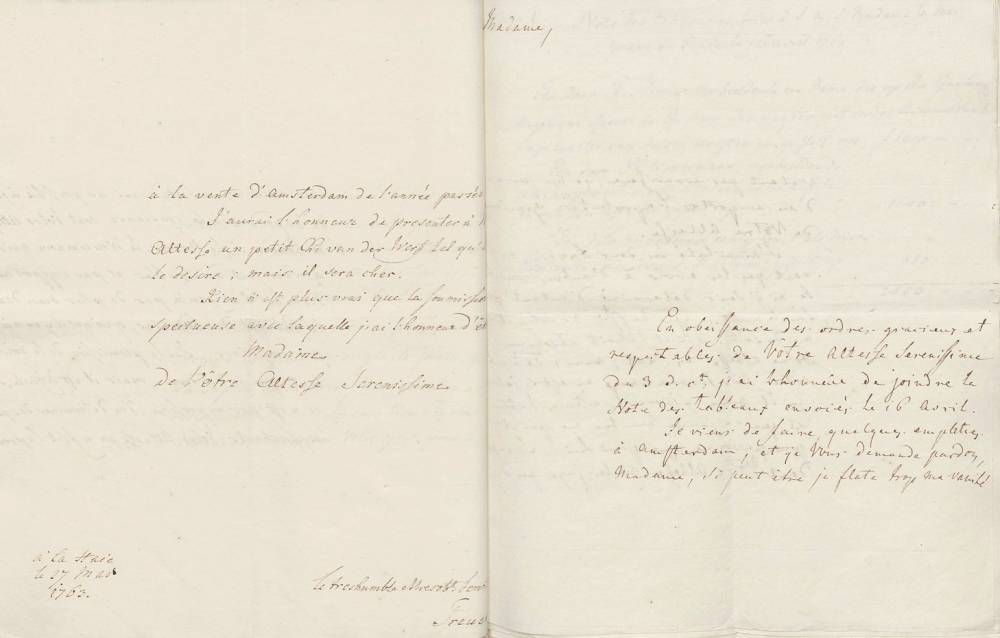 à la vente d'amsterdam de l'année passée
J'aurai l'honneur de presenter à
Altesse un petit Che van der Werf tel qu'
le desire; mais il sera cher.
Rien n'est plus vrai que la soumission
spectueuse avec laquelle j'ai l'honneur d'ê
Madame
de Vôtre Altesse Serenissime
à la Haie
le 27 Mai
1763.
le treshumble &tresobt. Serv
Treu
Madame,
En obeissance des ordres gracieux et
respectables de Vôtre Altesse Serenissime
du 3 d. ct. j'ai l'honneur de joindre la
Note des tableaux envoiés le 16 Avril.
Je viens de faire quelques emplêtes
à Amsterdam; et je Vous demande pardon,
Madame, si peut être je flate trop ma vanité